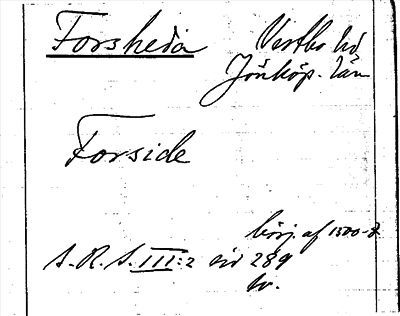 Forsheda Västbo hd
Jönköp. län
Forside
börj. af 1500-t.
S. R. S. III:2 sid 289